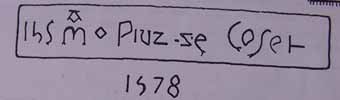 IHS M ◇ PIUZ-SE COSET
1578